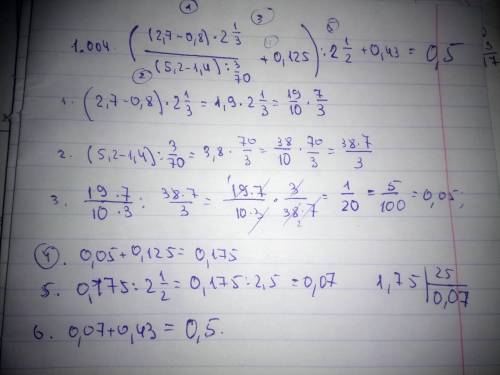 ① ③ ⑤
1.004. ( (2,7-0,8)·2 1/3 / (5,2-1,4):3/70 + 0,125 ) : 2 1/2 + 0,43 = 0,5
② ④
1. (2,7-0,8)·2 1/3 = 1,9·2 1/3 = 19/10 · 7/3
2. (5,2-1,4):3/70 = 3,8·70/3 = 38/10 · 70/3 = 38·7/3
3. 19·7/10·3 : 38·7/3 = 19·7/10·3 · 3/38·7 = 1/20 = 5/100 = 0,05;
④. 0,05+0,125 = 0,175
5. 0,175:2 1/2 = 0,175:2,5 = 0,07 1,75 | 25
0,07
6. 0,07+0,43 = 0,5.